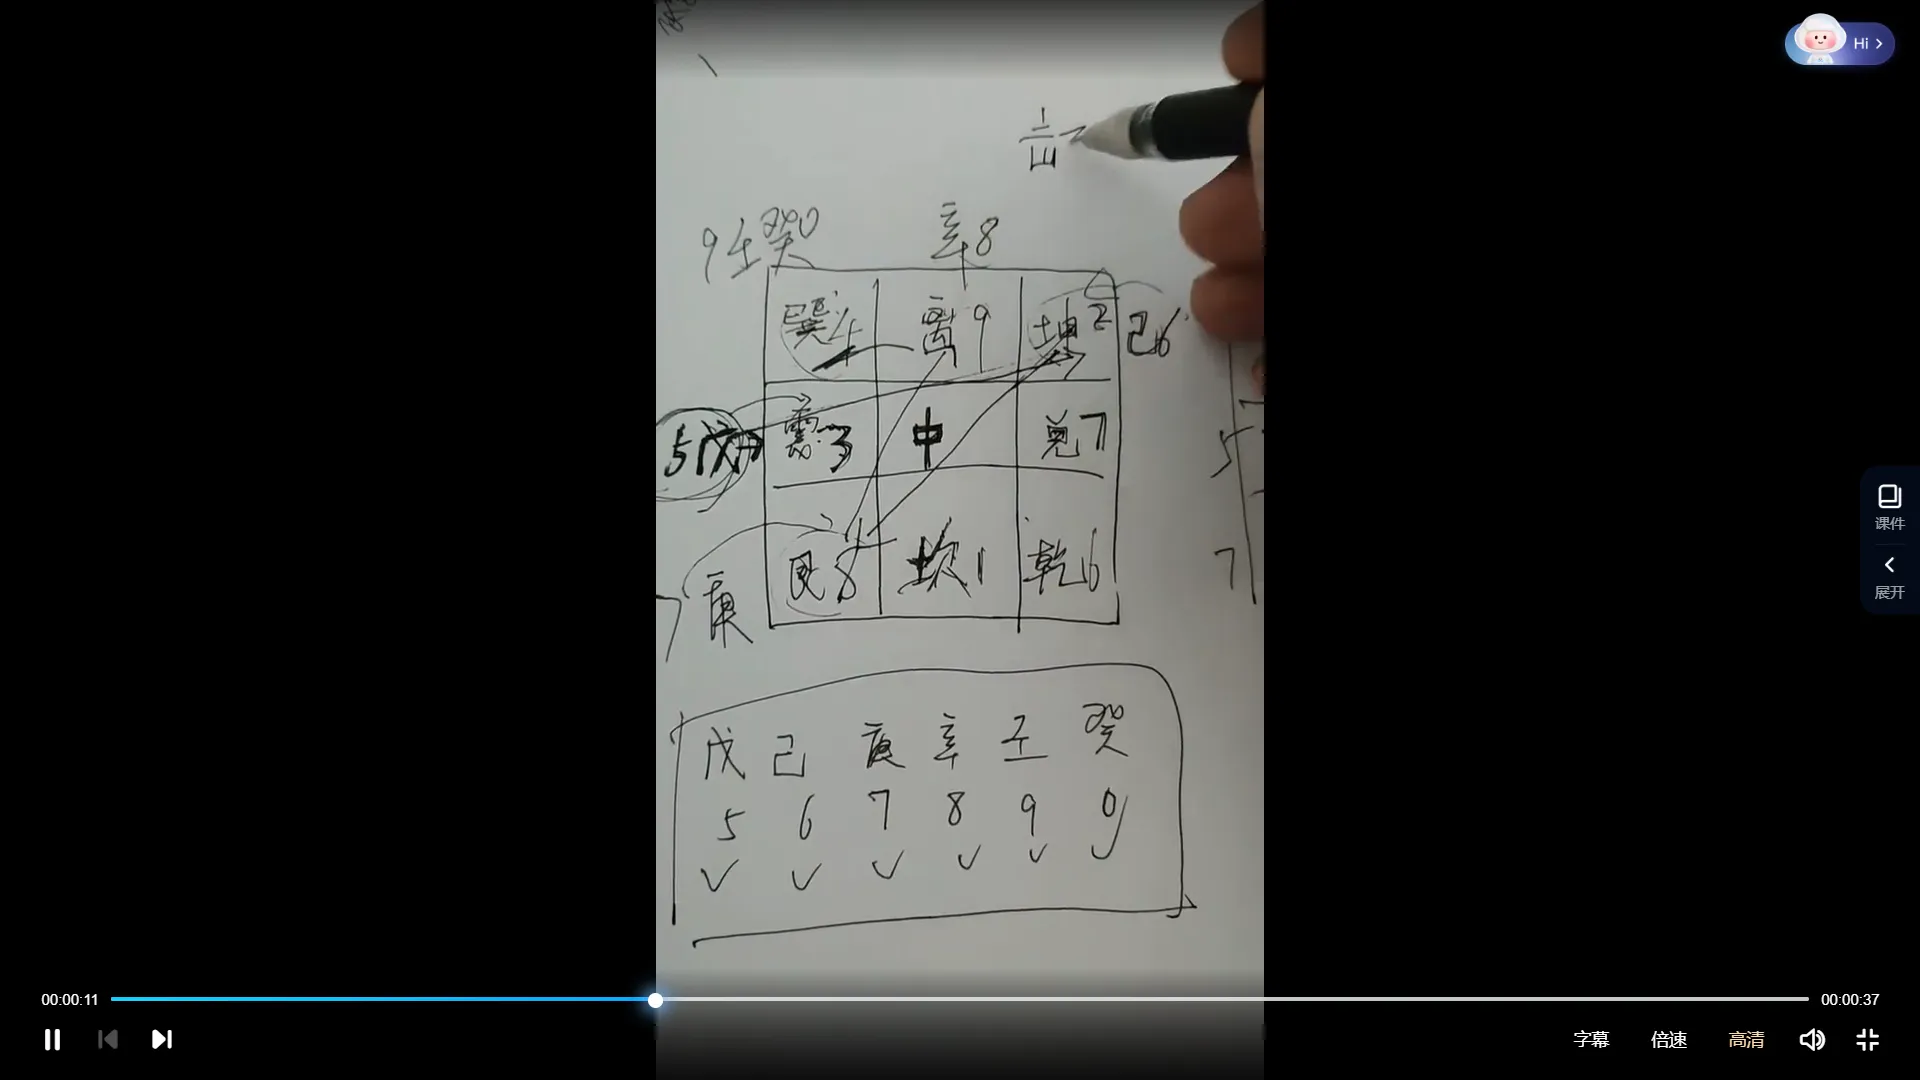 Hi
9壬癸0
辛8
巽4 离9 坤2 己6
5戊 震3 中 兑7
5
7庚 艮8 坎1 乾6
7
戊 己 庚 辛 壬 癸
5 6 7 8 9 0
课件
展开
00:00:11
00:00:37
字幕 倍速 高清